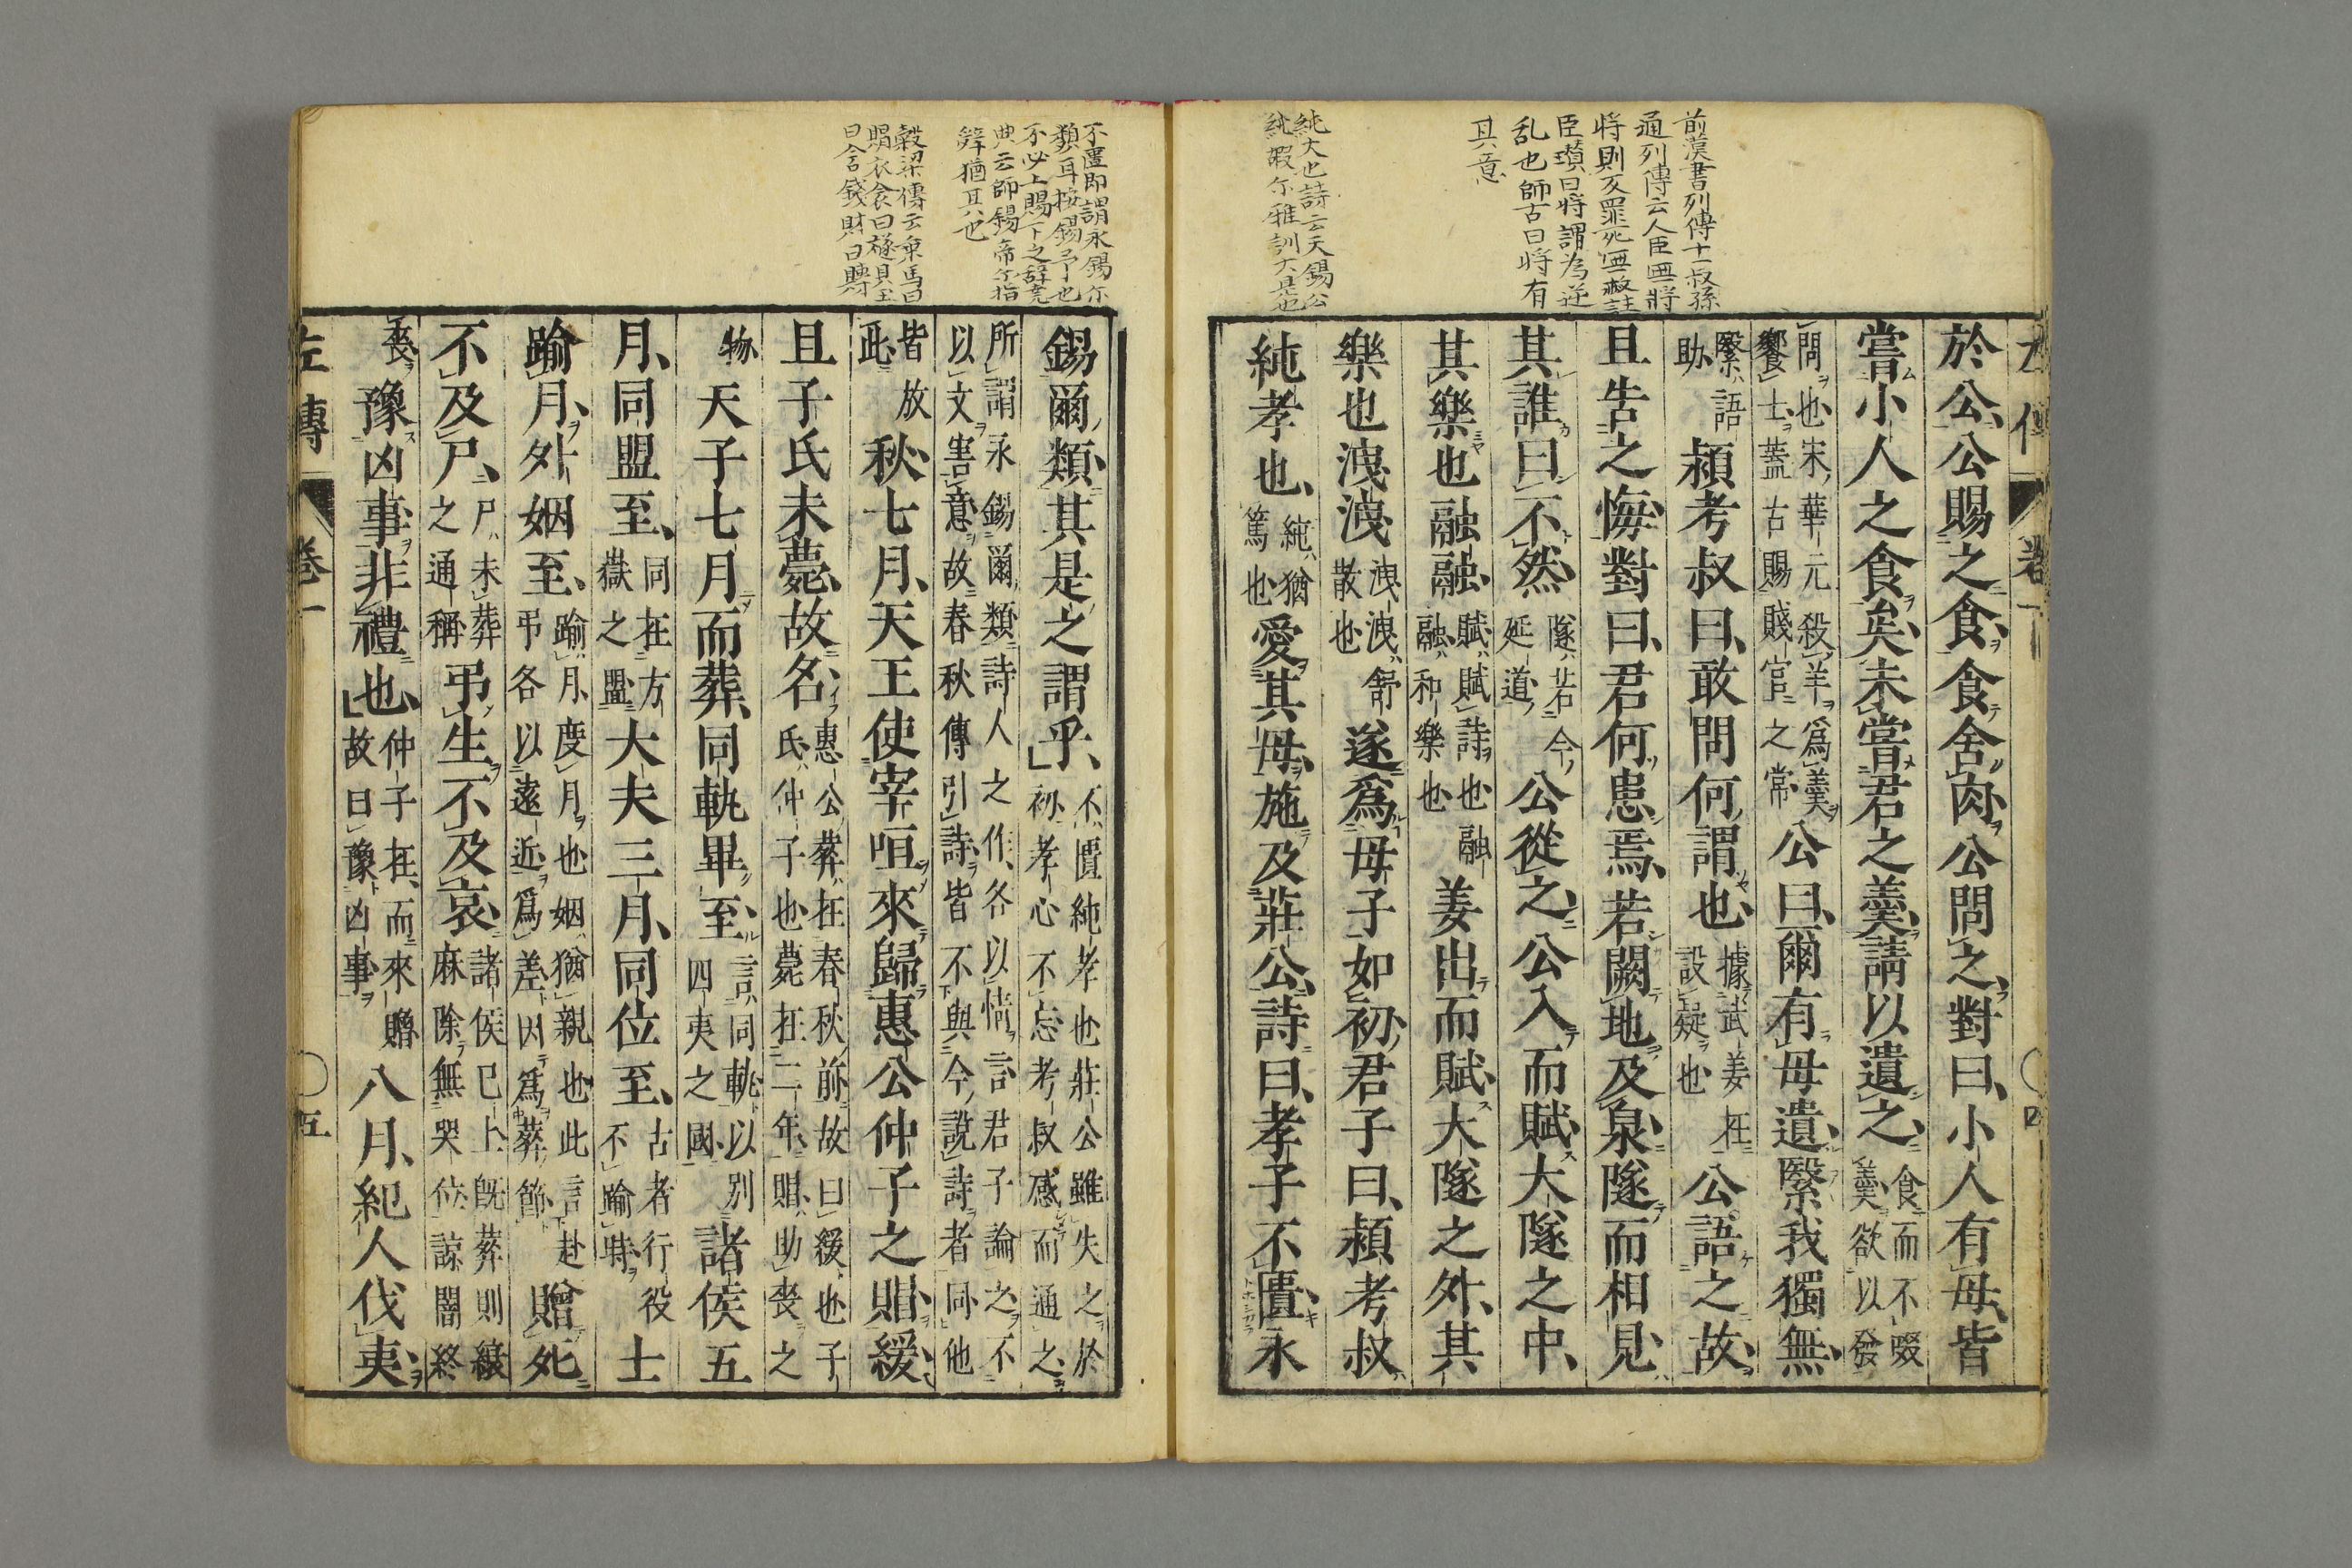 前漢書列傳十一叔孫
通列傳云人臣無將
將則反罪死無赦註
臣瓚曰將謂為逆
乱也師古曰將有
其意
純大也詩云天錫公
純嘏尓雅訓大是也
左傳 卷一 四
於公公賜之食食舍肉公問之對曰小人有母皆
嘗小人之食矣未嘗君之羹請以遺之
食而不啜
羹欲以發
問也宋華元殺羊爲羹
饗士蓋古賜賤官之常
公曰爾有母遺繄我獨無
繄語
助
潁考叔曰敢問何謂也
據武姜在
設疑也
公語之故
且告之悔對曰君何患焉若闕地及泉隧而相見
其誰曰不然
隧若今
延道
公從之公入而賦大隧之中
其樂也融融
賦賦詩也融
融和樂也
姜出而賦大隧之外其
樂也洩洩
洩洩舒
散也
遂爲母子如初君子曰潁考叔
純孝也
純猶
篤也
愛其母施及莊公詩曰孝子不匱永
不匱即謂永錫尓
類耳按錫予也
不必上賜下之辞
典云師錫帝尓指
辞猶其也
穀梁傳云乗馬曰
賵衣衾曰襚貝玉
曰含錢財曰賻
錫爾類其是之謂乎
不匱純孝也莊公雖失之於
初孝心不忘考叔感而通之
所謂永錫爾類詩人之作各以情言君子論之不
以文害意故春秋傳引詩皆不與今說詩者同他
皆放
此
秋七月天王使宰咺來歸惠公仲子之賵緩
且子氏未薨故名
惠公葬在春秋前故曰緩也子
氏仲子也薨在二年賵助喪之
物
天子七月而葬同軌畢至
言同軌以別
四夷之國
諸侯五
月同盟至
同在方
嶽之盟
大夫三月同位至
古者行役
不踰時
士
踰月外姻至
踰月度月也姻猶親也此言赴
弔各以遠近爲差因爲葬節
贈死
不及尸
尸未葬
之通稱
弔生不及哀
諸侯已上既葬則縗
麻除無哭位諒闇終
喪
豫凶事非禮也
仲子在而來贈
故曰豫凶事
八月紀人伐夷
左傳 卷一 五